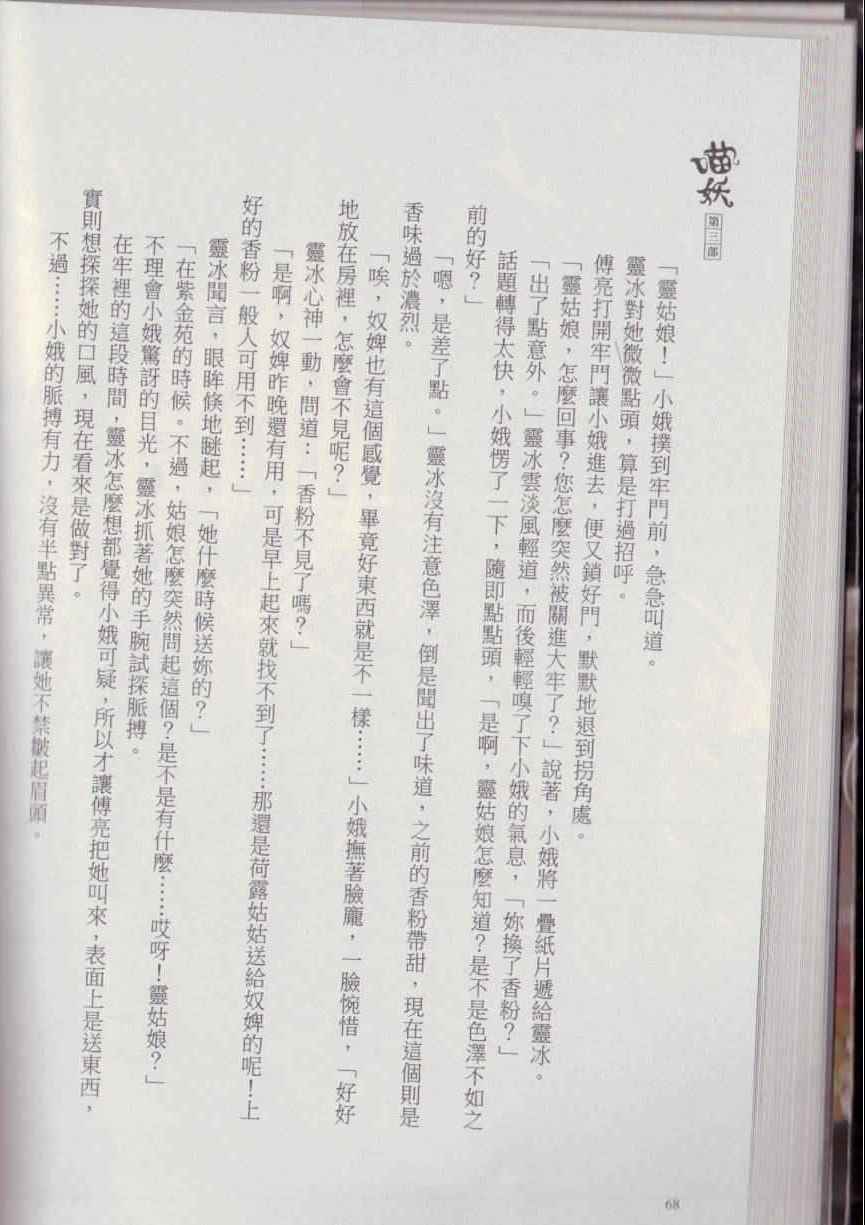 喵妖
第三部
「靈姑娘！」小娥撲到牢門前，急急叫道。
靈冰對她微微點頭，算是打過招呼。
傅亮打開牢門讓小娥進去，便又鎖好門，默默地退到拐角處。
「靈姑娘，怎麼回事？您怎麼突然被關進大牢了？」說著，小娥將一疊紙片遞給靈冰。
「出了點意外。」靈冰雲淡風輕道，而後輕輕嗅了下小娥的氣息，「妳換了香粉？」
話題轉得太快，小娥愣了一下，隨即點點頭，「是啊，靈姑娘怎麼知道？是不是色澤不如之
前的好？」
「嗯，是差了點。」靈冰沒有注意色澤，倒是聞出了味道，之前的香粉帶甜，現在這個則是
香味過於濃烈。
「唉，奴婢也有這個感覺，畢竟好東西就是不一樣……」小娥撫著臉龐，一臉惋惜，「好好
地放在房裡，怎麼會不見呢？」
靈冰心神一動，問道：「香粉不見了嗎？」
「是啊，奴婢昨晚還有用，可是早上起來就找不到了……那還是荷露姑姑送給奴婢的呢！上
好的香粉一般人可用不到……」
靈冰聞言，眼眸倏地瞇起，「她什麼時候送妳的？」
「在紫金苑的時候。不過，姑娘怎麼突然問起這個？是不是有什麼……哎呀！靈姑娘？」
不理會小娥驚訝的目光，靈冰抓著她的手腕試探脈搏。
在牢裡的這段時間，靈冰怎麼想都覺得小娥可疑，所以才讓傅亮把她叫來，表面上是送東西，
實則想探探她的口風，現在看來是做對了。
不過……小娥的脈搏有力，沒有半點異常，讓她不禁皺起眉頭。
68